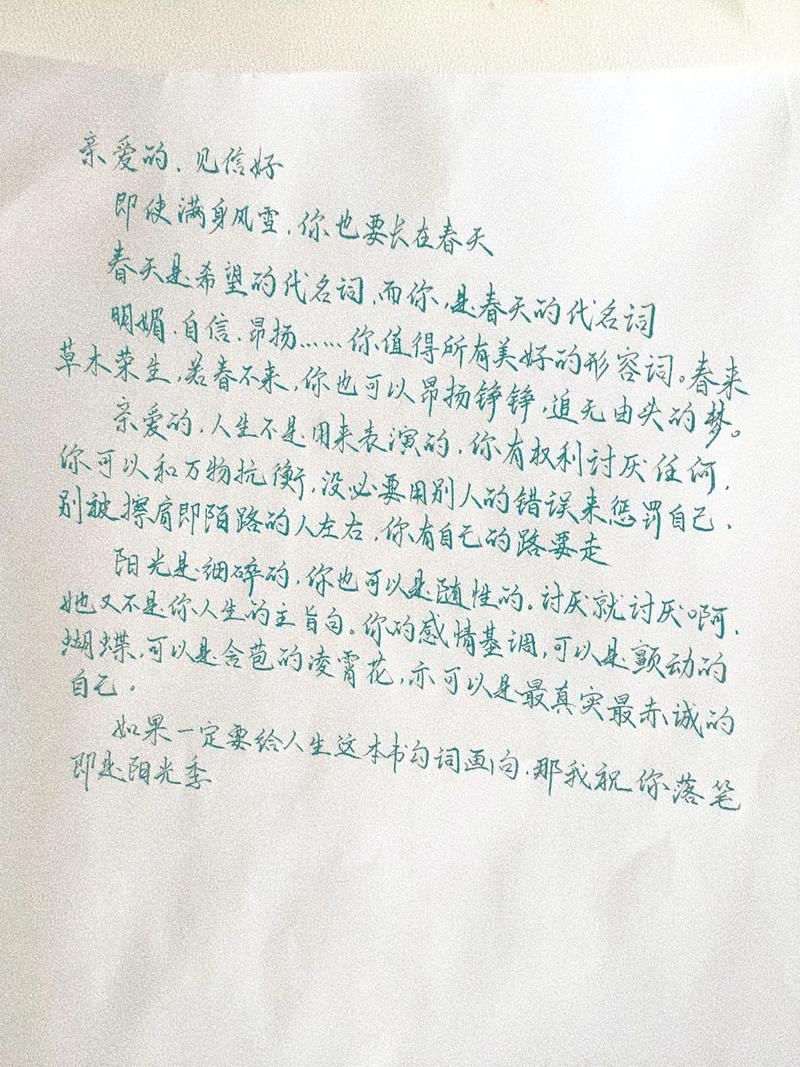 亲爱的、见信好
即使满身风雪,你也要长在春天
春天是希望的代名词、而你,是春天的代名词
明媚.自信.昂扬……你值得所有美好的形容词。春来
草木荣生,若春不来,你也可以昂扬铮铮,追无由头的梦。
亲爱的,人生不是用来表演的,你有权利讨厌任何,
你可以和万物抗衡,没必要用别人的错误来惩罚自己、
别被擦肩即陌路的人左右,你有自己的路要走
阳光是细碎的,你也可以是随性的。讨厌就讨厌啊,
她又不是你人生的主旨句。你的感情基调,可以是颤动的
蝴蝶,可以是含苞的凌霄花,亦可以是最真实最赤诚的
自己。
如果一定要给人生这本书勾词画句,那我祝你落笔
即是阳光季